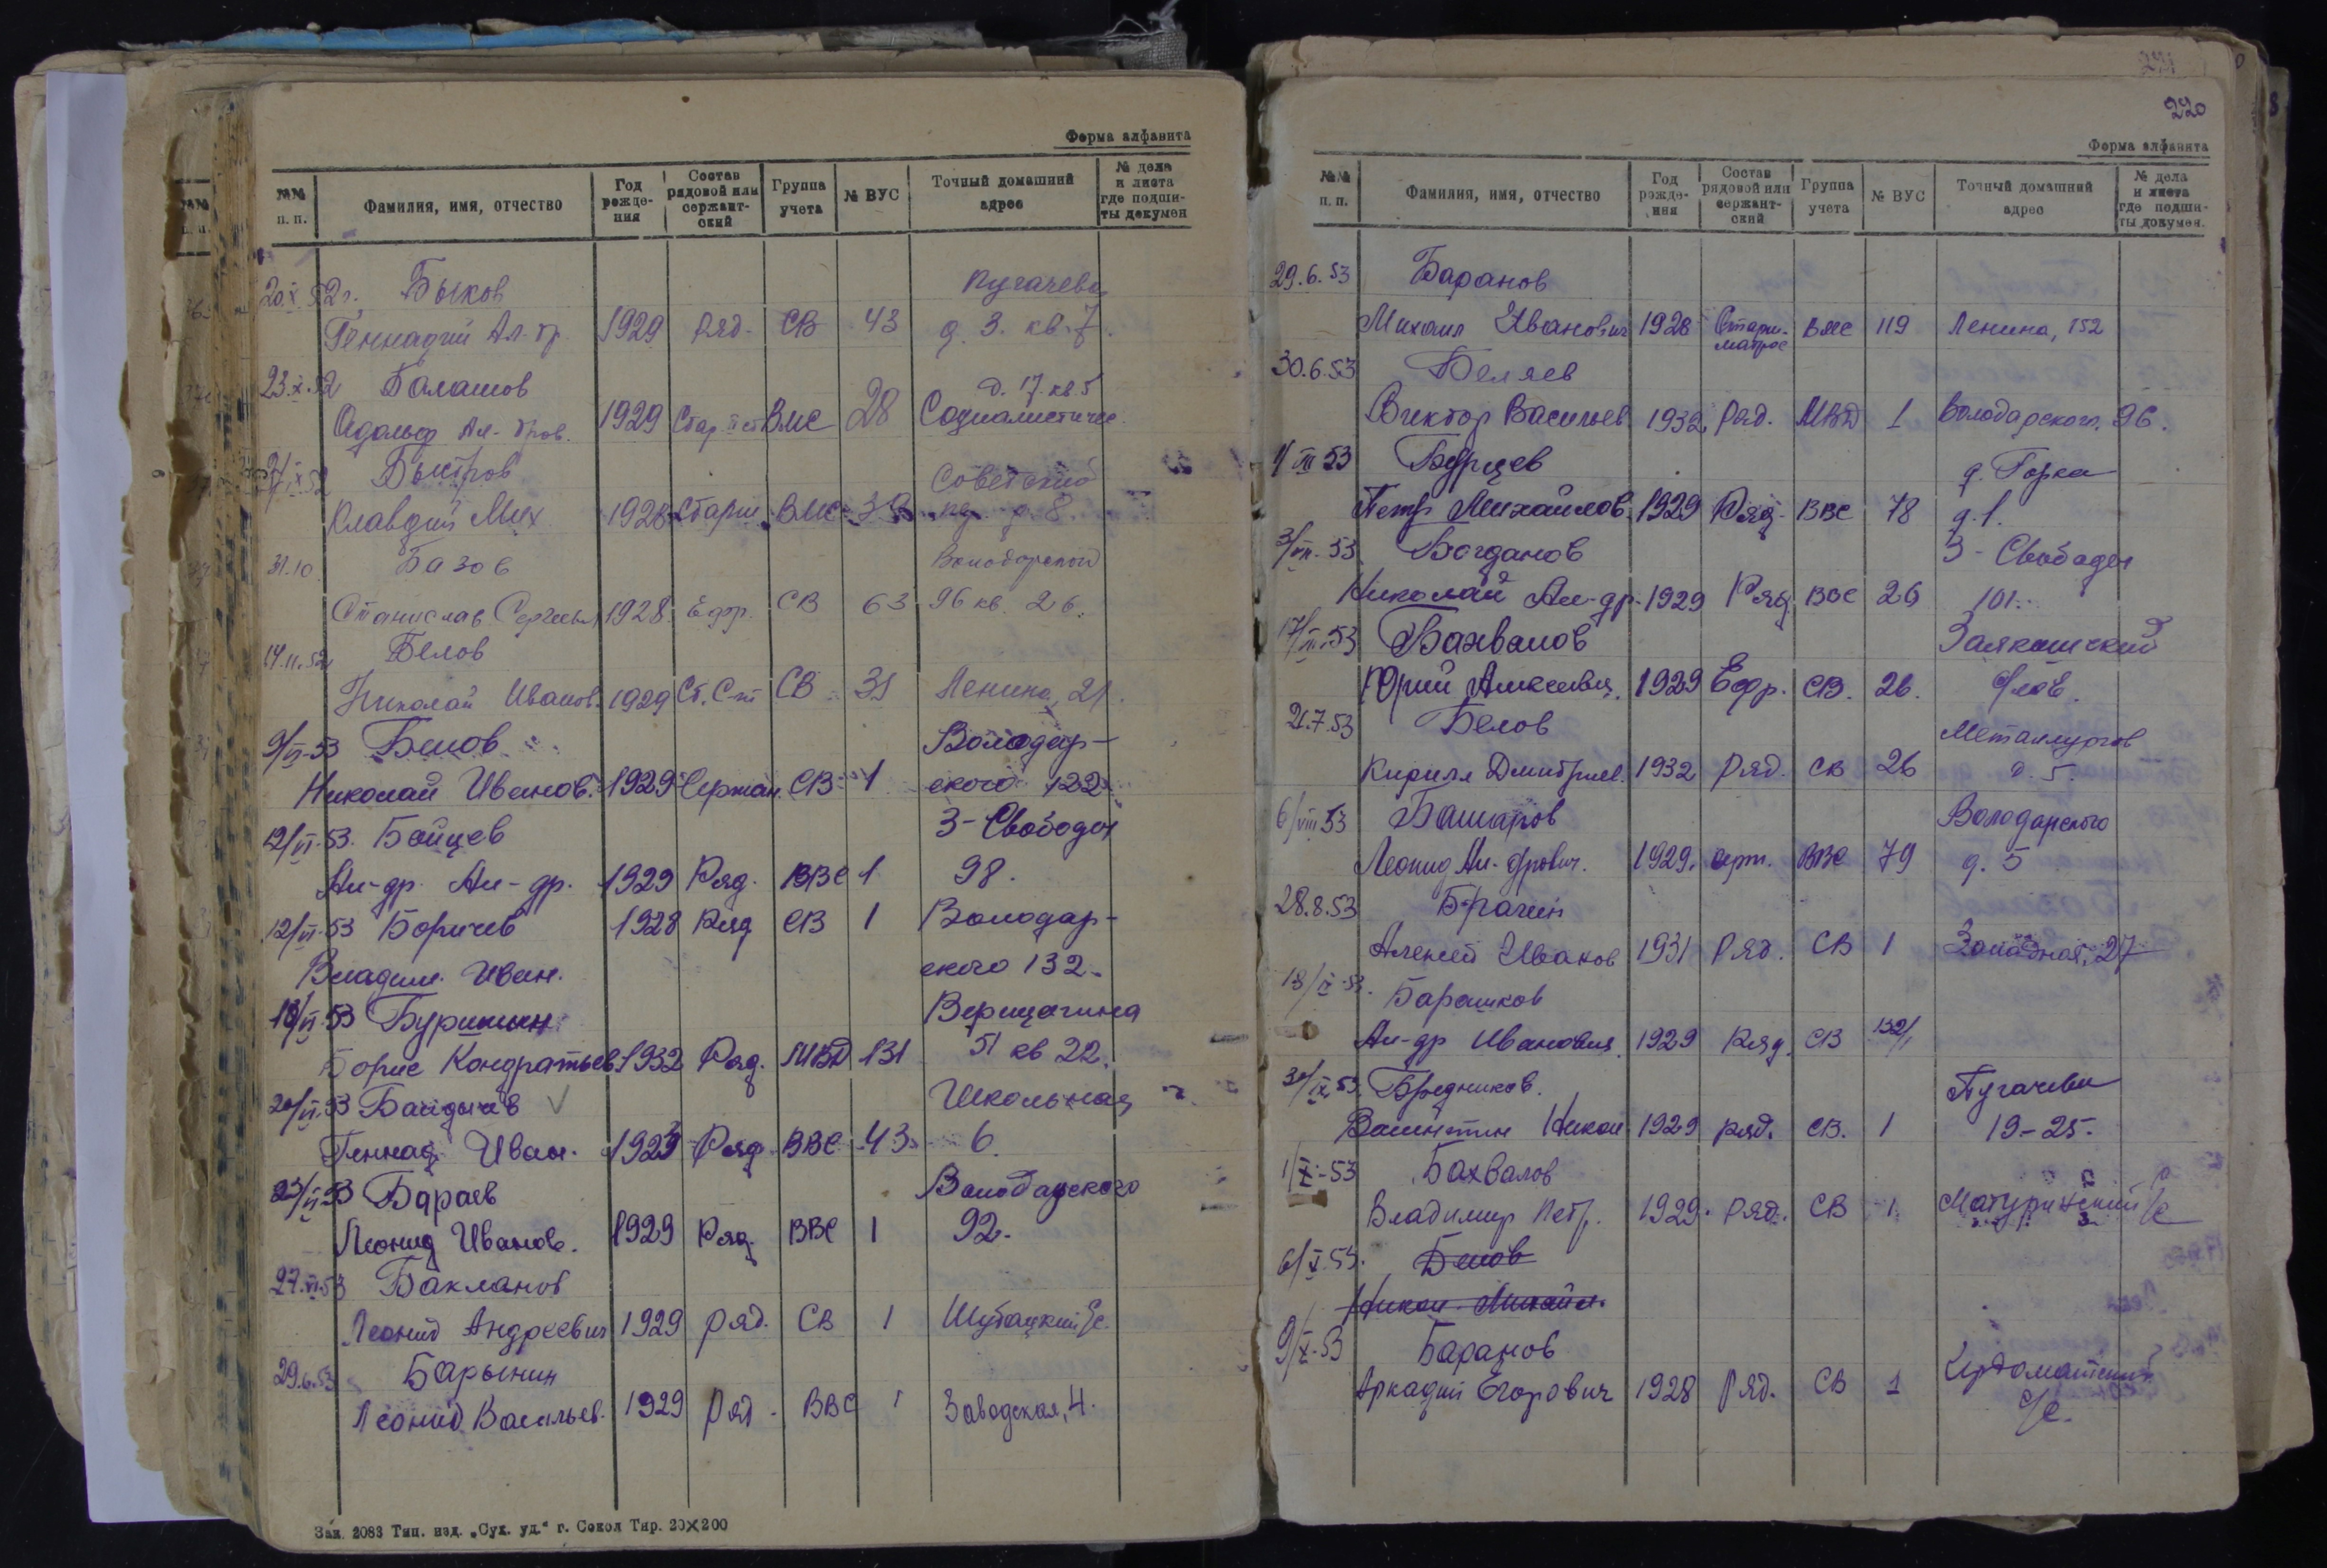 Форма алфавита
№№ п. п.
Фамилия, имя, отчество
Год рождения
Состав рядовой или сержантский
Группа учета
№ ВУС
Точный домашний адрес
№ дела и листа где подшиты докумен
20.X.52г. Быков Пугачева
Геннадий Ал-др 1929 Ряд. СВ 43 д. 3. кв. 7.
23.X.52 Балашов д. 17. кв 5
Адольф Ал-дров. 1929 ВМС 28 Социалистичес.
Быстров Советский
Клавдий Мих 1928 Старш. ВМС д. 8.
31.10. Базов
Станислав Сергеевич 1928. Ефр. СВ 63 96 кв. 26.
14.11.52 Белов
Николай Иванов. 1929 Ст. С-нт СВ 31 Ленина, 21.
9/VI-53 Белов Володар-
Николай Иванов. 1929 Сержан. СВ 1 ского 122
12/VI-53. Бойцев 3-Свободы
Ал-др. Ал-др. 1929 Ряд. ВВС 1 98.
12/VI-53 Боричев 1928 Ряд СВ 1 Володар-
Владим. Иван. ского 132.
18/VI-53 Верещагина
Борис Кондратьев. 1932 Ряд. МВД 131 51 кв 22.
20/VI-53 Школьная
Геннад. Иван. 1929 Ряд. ВВС 43 6.
23/VI-53 Бараев Володарского
Леонид Иванов. 1929 Ряд. ВВС 1 92.
27.VI.53 Бакланов
Леонид Андреевич 1929 ряд. СВ 1 Шубацкий с/с.
29.6.53 Барынин
Леонид Васильев. 1929 Ряд. ВВС 1 Заводская, 4.
Зак. 2083 Тип. изд. „Сух. уд.“ г. Сокол Тир. 20×200
220
Форма алфавита
№№ п. п.
Фамилия, имя, отчество
Год рождения
Состав рядовой или сержантский
Группа учета
№ ВУС
Точный домашний адрес
№ дела и листа где подшиты докумен.
29.6.53 Баранов
Михаил Иванович 1928 Старш. матрос ВМС 119 Ленина, 152
30.6.53 Беляев
Виктор Васильев. 1932 Ряд. МВД 1 Володарского, 96.
1/VII 53 Бурцев д. Горка
Петр Михайлов. 1929 Ряд. ВВС 78 д. 1.
3/VII-53 Богданов 3-Свободы
Николай Ал-др. 1929 Ряд ВВС 26 101.
17/VII-53 Бахвалов
Юрий Алексеевич. 1929 Ефр. СВ. 26.
21.7.53 Белов Металлургов
Кирилл Дмитриев. 1932 Ряд. СВ 26 д. 5.
6/VIII 53 Башаров Володарского
Леонид Ал-дрович. 1929. ВВС 79 д. 5
28.8.53 Брагин
Алексей Иванов 1931 Ряд. СВ 1 Западная, 27
18/IX-53. Барашков
Ал-др Иванович. 1929 Ряд. СВ 132/1
30/IX 53. Бредников. Пугачева
Валентин Никол 1929 ряд. СВ. 1 19-25.
1/X-53 Бахвалов
Владимир Петр. 1929. Ряд. СВ 1 Матуринский с/с
6/X.53. Белов
Никол. Михайл.
9/X-53 Баранов
Аркадий Егорович 1928 Ряд. СВ 1
с/с.